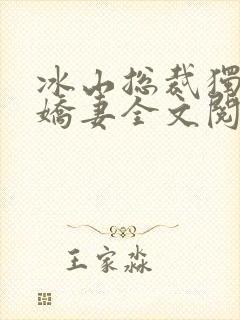 冰山总裁獨
嬌妻全文閱
王家淼